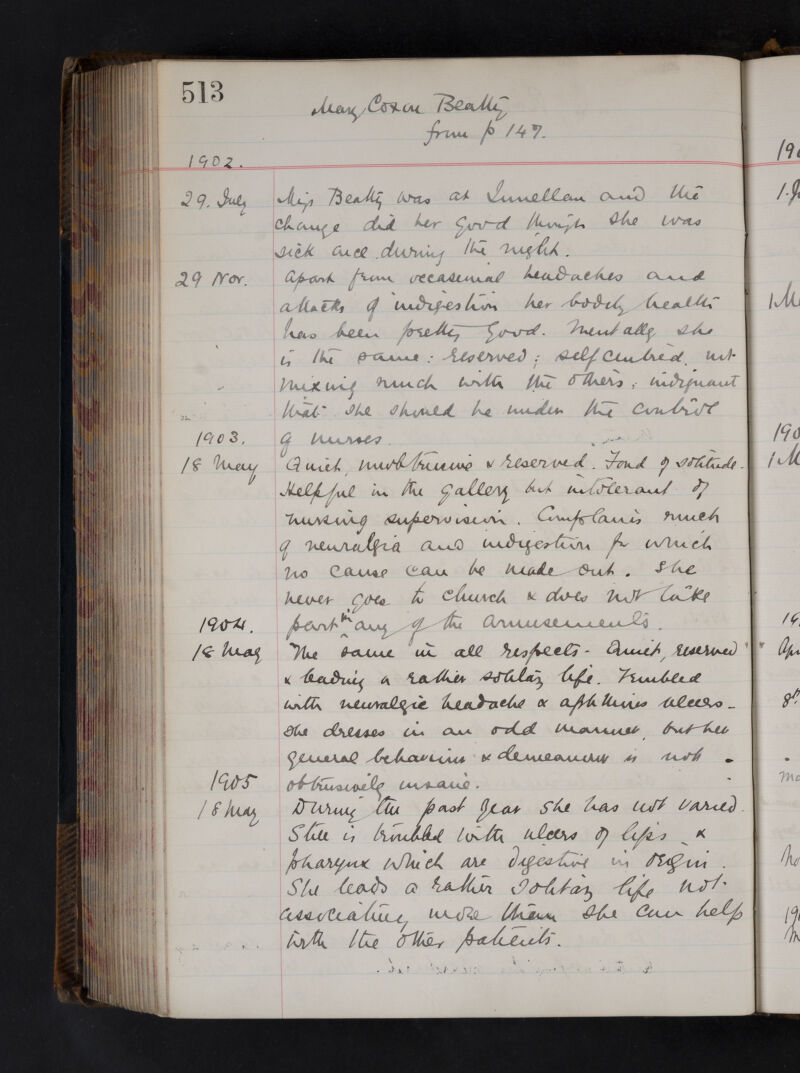 513
Mary Coxon Beatty
from p 147.
1902.
29. July Miss Beatty was at Innellan and the
change did her good though she was
sick once during the night.
29 Nov. Apart from occasional headaches and
attacks of indigestion her bodily health
has been pretty good. Mentally she
is the same: reserved; selfcentred, not
mixing much with the others; indignant
that she should be under the control
1903. of nurses.
18 May Quiet, unobtrusive & reserved. Fond of solitude.
Helpful in the gallery but intolerant of
nursing supervision. Complains much
of neuralgia and indigestion for which
no cause can be made out. She
never goes to church & does not take
1904. part in any of the amusements.
18 May The same in all respects - Quiet, reserved
& leading a rather solitary life. Troubled
with neuralgic headache & aphthous ulcers -
She dresses in an odd manner, but her
general behaviour & demeanour is not
1905 obtrusively insane.
18 May During the past year she has not varied.
Still is troubled with ulcers of lips &
pharynx which are digestive in origin.
She leads a rather solitary life not
associating more than she can help
with the other patients.
190
1. J
1. Ma
190
1 M
19
Apr
8th
Ma
No
19
M